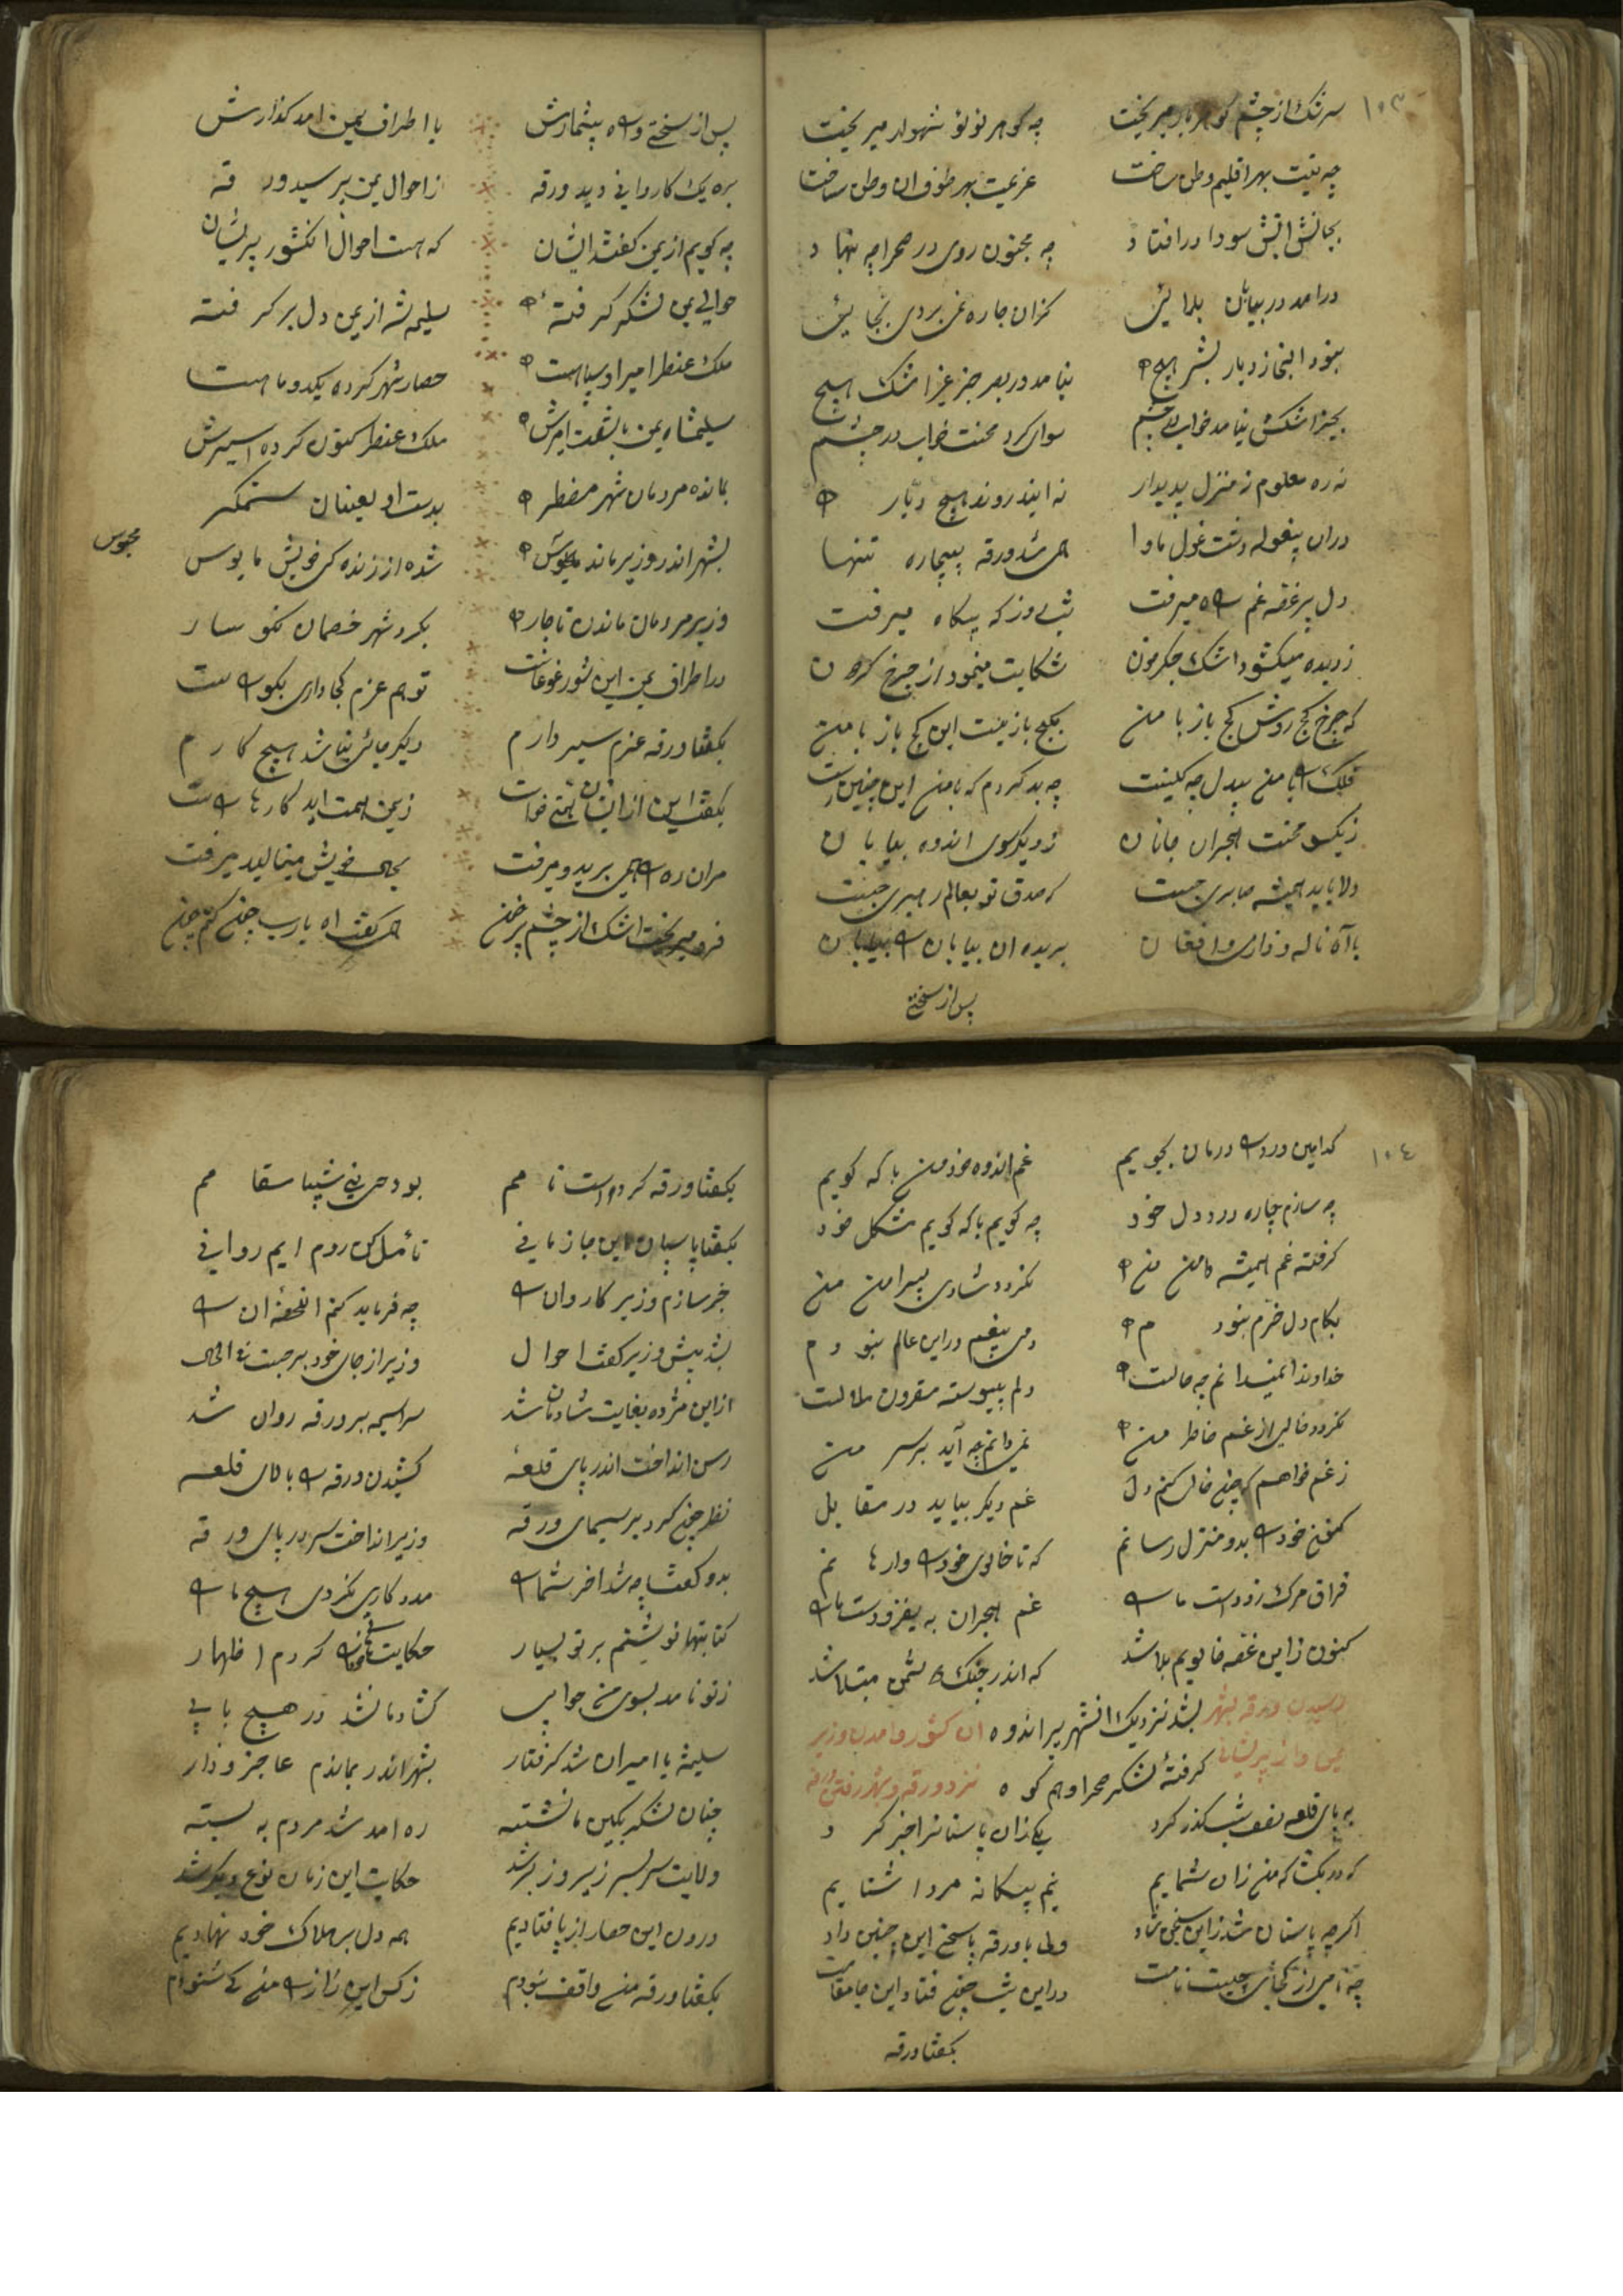 ۱۰۳
سرشک از چشم گوهر بار میریخت چه گوهر لؤلؤ شهوار میریخت
چه نیت بهر اقلیم وطن ساخت عزیمت بهر طوف ان وطن ساخت
بجانش اتش سودا در افتاد چه مجنون روی در صحرا چه بنهاد
درامد در بیابان بلائی کزان جا ره نمی بردی بجائی
نبود انجا ز دیار بشر هیچ نیامد در بصر جز غیر اشک هیچ
بجز اشکش نیامد خواب در چشم سوای کرد محنت خواب در چشم
نه ره معلوم نه منزل پدیدار نه ایند روند هیچ دیار
دران پیغوله دشت غول ماوا همی شد ورقه بیچاره تنها
دل پر غصه غم راه میرفت شب و روز که بیگاه میرفت
ز دیده میگشود اشک جگرگون شکایت مینمود از چرخ گردون
که چرخ کج روش کج باز با من بکج بازیست این کج باز با من
فلک را با من بیدل چه کینست چه بد کردم که با من این چنین است
ز یکسو محنت هجران جانان ز دیگر سوی اندوه بیابان
دلا باید همیشه صابری جست که صدق تو بعالم رهبری جست
با آه ناله و زاری و افغان بریده ان بیابان را بیابان
پس از سختی
پس از سختی و راه بیشمارش با اطراف یمن امد گذارش
بره یک کاروانی دید ورقه از احوال یمن پرسید ورقه
چه گویم از یمن گفتند ایشان که هست احوال انکشور پریشان
حوالی یمن لشکر گرفته سلیمشه از یمن دل بر گرفته
ملک عنطر امیر او سپاهست حصار شهر کرده یکدو ماهست
سلیمشاه یمن با هفت امیرش ملک عنطر کنون کرده اسیرش
بمانده مردمان شهر مضطر بدست او لعینان ستمگر
بشهر اندر وزیر مانده مایوس شده از زنده کی خویش مایوس
محبوس
وزیر مردمان ماندن ناچار بگرد شهر خصمان نگو سار
در اطراف یمن این شور غوغاست تو هم عزم کجا داری بگو راست
بگفتا ورقه عزم سیر دارم دیگر جائی نباشد هیچ کارم
بگفت این از ایشان همتی خواست ز یمن همت اید کارها راست
مران ره را همی برید و میرفت بجای خویش مینالید میرفت
فرو میریخت اشک از چشم پر خون همی گفت اه یارب چون کنم چون
۱۰٤
کدامین درد را درمان بجویم غم اندوه خود من با که گویم
چه سازم چاره درد دل خود چه گویم با که گویم مشکل خود
گرفته غم همیشه دامن من نگردد شادی پیرامن من
بکام دل خرم نبودم دمی بیغم در این عالم نبودم
خداوندا نمیدانم چه حالست دلم پیوسته مقرون ملالست
نگردد خالی از غم خاطر من نمیدانم چه آید بر سر من
ز غم خواهم که چون خالی کنم دل غم دیگر بیاید در مقابل
کنون خود را بدو منزل رسانم که تا خالوی خود را وارهانم
فراق مرگ زوداست ما را غم هجران به یفزودست ما را
کنون زاین غصه خالویم بلا شد که اندر چنگ دشمن مبتلا شد
رسیدن ورقه بشهر بشد نزدیک انشهر پر اندوه ان کشور و امدن وزیر
یمن و از پریشانی گرفته لشکر صحرا و هم کوه نزد ورقه و بشهر رفتن ورقه
به پای قلعه نصف شب گذر کرد یکی زان پاسبانرا خبر کرد
که در بگشا که من زان شمایم نیم بیگانه مرد اشنایم
اگر چه پاسبان شد زاین سخن شاد ولی با ورقه پاسخ این چنین داد
چه نامی از کجای چیست نامت در این شب چون فتاد این جا مقامت
بگفتا ورقه
بگفتا ورقه کرد است نامم بود حی بنی شیبا مقامم
بگفتا پاسبان این جا زمانی تأمل کن روم ایم روانی
خبر سازم وزیر کاروان را چه فرماید کنم انلحظه ان را
بشد پیش وزیر گفت احوال وزیر از جای خود بر جست فی الحال
از این مژده بغایت شادمان شد سراسیمه بر ورقه روان شد
رسن انداخت اندر پای قلعه کشیدن ورقه را بالای قلعه
نظر چون کرد بر سیمای ورقه وزیر انداخت سر در پای ورقه
بدو گفتا چه شد اخر شما را مدد کاری نکردی هیچ ما را
کتابتها نوشتم بر تو بسیار حکایت کردم اظهار
ز تو نامد بسوی من جوابی گشاد ما نشد در هیچ بابی
سلیمشه با امیران شد گرفتار بشهر اندر بماندم عاجز و زار
چنان لشکر بکین ما نشسته ره امد شد مردم به بسته
ولایت سربسر زیر و زبر شد حکایت این زمان نوع دیگر شد
درون این حصار از پا فتادیم همه دل بر هلاک خود نهادیم
بگفتا ورقه من واقف نبودم ز کس این راز را من کی شنودم